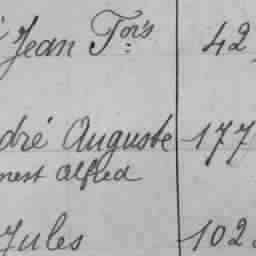 Jean Fois 42
dré Auguste 177
nest Alfred
Jules 102